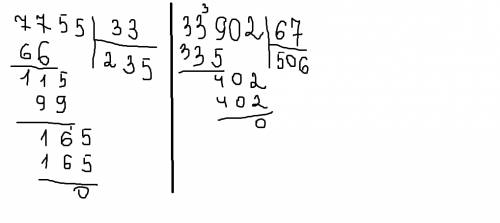 7755 33
66 235
115
99
165
165
0
3
33902 67
335 506
402
402
0